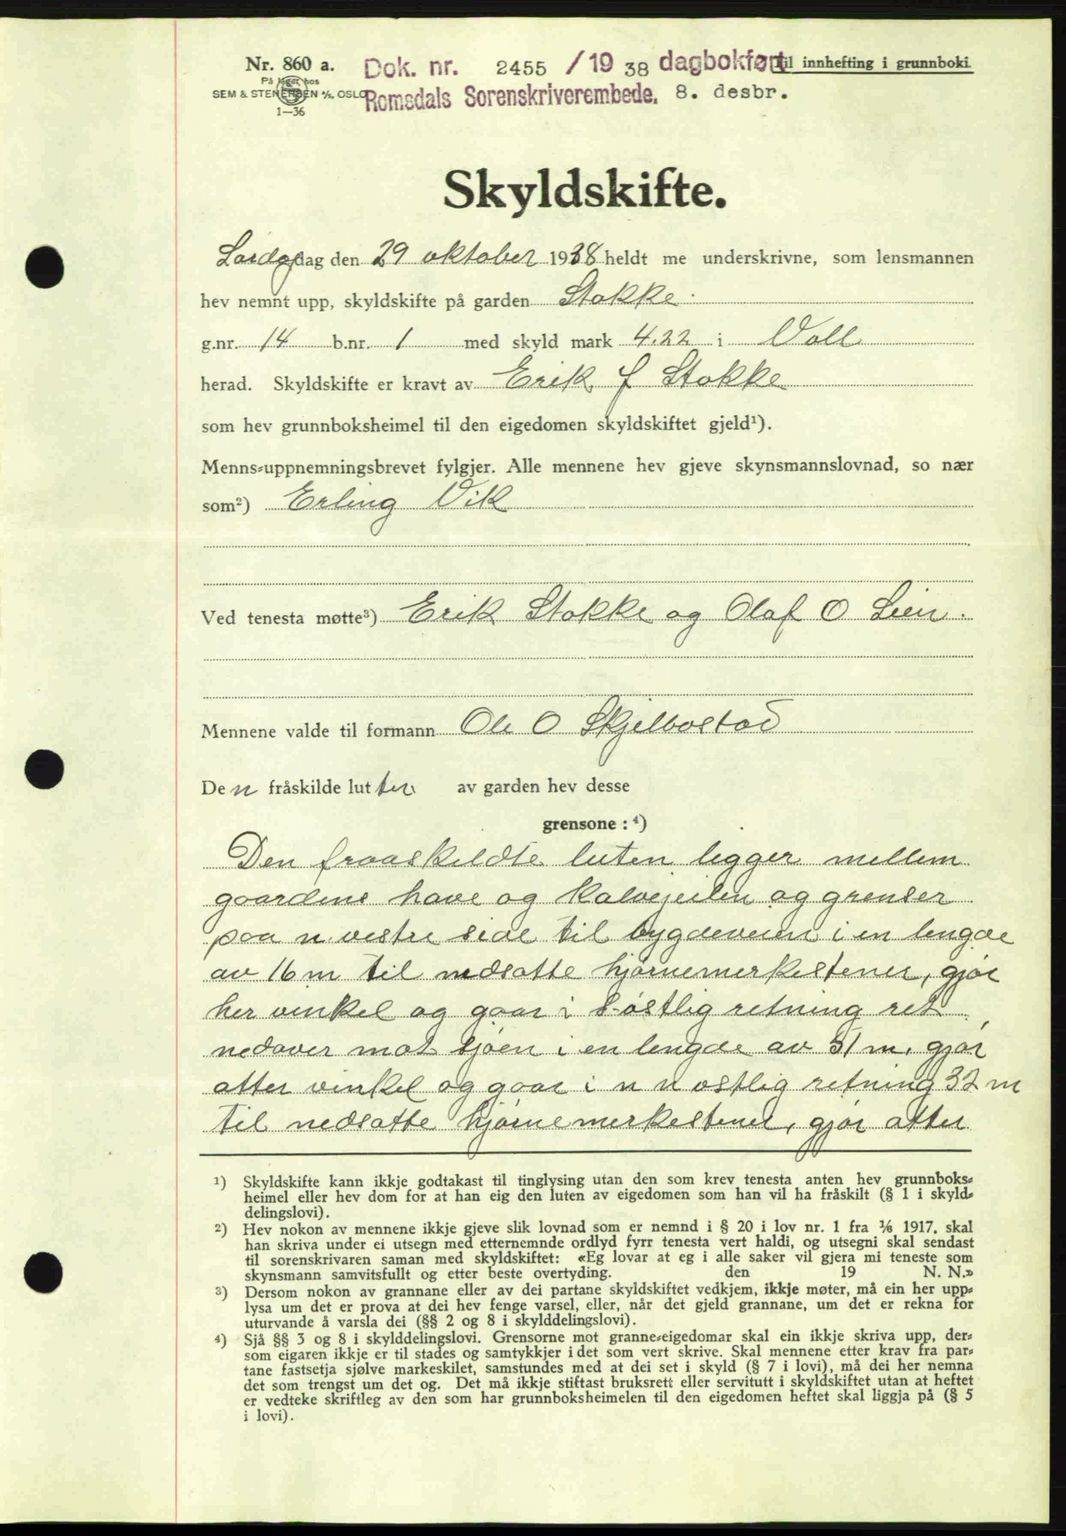 Nr. 860 a.
På lager hos
SEM & STENERSEN A/S, OSLO
1—36
Dok. nr. 2455 /19 38 dagbokført
til innhefting i grunnboki.
Romsdals Sorenskriverembede. 8. desbr.
Skyldskifte.
dag den 29 oktober 1938 heldt me underskrivne, som lensmannen
hev nemnt upp, skyldskifte på garden Stokke.
g.nr. 14 b.nr. 1 med skyld mark 4.22 i Voll
herad. Skyldskifte er kravt av Erik J Stokke
som hev grunnboksheimel til den eigedomen skyldskiftet gjeld¹).
Menns-uppnemningsbrevet fylgjer. Alle mennene hev gjeve skynsmannslovnad, so nær
som²) Erling Vik
Ved tenesta møtte³) Erik Stokke og Olaf O Leir.
Mennene valde til formann Ole O Skjelbostad
Den fråskilde luten av garden hev desse
grensone : ⁴)
Den fraaskildte luten ligger mellem
gaardens have og Kalvejeilen og grenser
paa n. vestre side til bygdeveien i en lengde
av 16 m til nedsatte hjørnemerkestener, gjør
her vinkel og gaar i s-østlig retning ret
nedover mot sjøen i en lengde av 51 m, gjør
atter vinkel og gaar i n n østlig retning 32 m
til nedsatte hjørnemerkestener, gjør atter
¹) Skyldskifte kann ikkje godtakast til tinglysing utan den som krev tenesta anten hev grunnboks-
heimel eller hev dom for at han eig den luten av eigedomen som han vil ha fråskilt (§ 1 i skyld-
delingslovi).
²) Hev nokon av mennene ikkje gjeve slik lovnad som er nemnd i § 20 i lov nr. 1 fra 1/6 1917, skal
han skriva under ei utsegn med etternemnde ordlyd fyrr tenesta vert haldi, og utsegni skal sendast
til sorenskrivaren saman med skyldskiftet: «Eg lovar at eg i alle saker vil gjera mi teneste som
skynsmann samvitsfullt og etter beste overtyding. den 19 N. N.»
³) Dersom nokon av grannane eller av dei partane skyldskiftet vedkjem, ikkje møter, må ein her upp-
lysa um det er prova at dei hev fenge varsel, eller, når det gjeld grannane, um det er rekna for
uturvande å varsla dei (§§ 2 og 8 i skylddelingslovi).
⁴) Sjå §§ 3 og 8 i skylddelingslovi. Grensorne mot granne-eigedomar skal ein ikkje skriva upp, der-
som eigaren ikkje er til stades og samtykkjer i det som vert skrive. Skal mennene etter krav fra par-
tane fastsetja sjølve markeskilet, samstundes med at dei set i skyld (§ 7 i lovi), må dei her nemna
det som trengst um det og. Det må ikkje stiftast bruksrett eller servitutt i skyldskiftet utan at heftet
er vedteke skriftleg av den som har grunnboksheimelen til den eigedomen heftet skal liggja på (§ 5
i lovi).